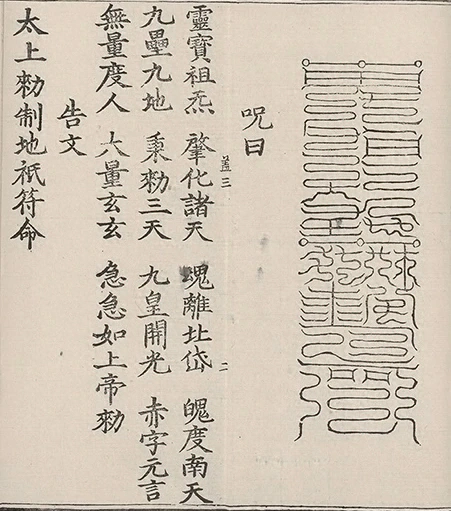 呪曰
靈寶祖炁 肇化諸天 魂離北岱 魄度南天
九壘九地 秉勑三天 九皇開光 赤字元言
無量度人 大量玄玄 急急如上帝勑
告文
太上勑制地祇符命